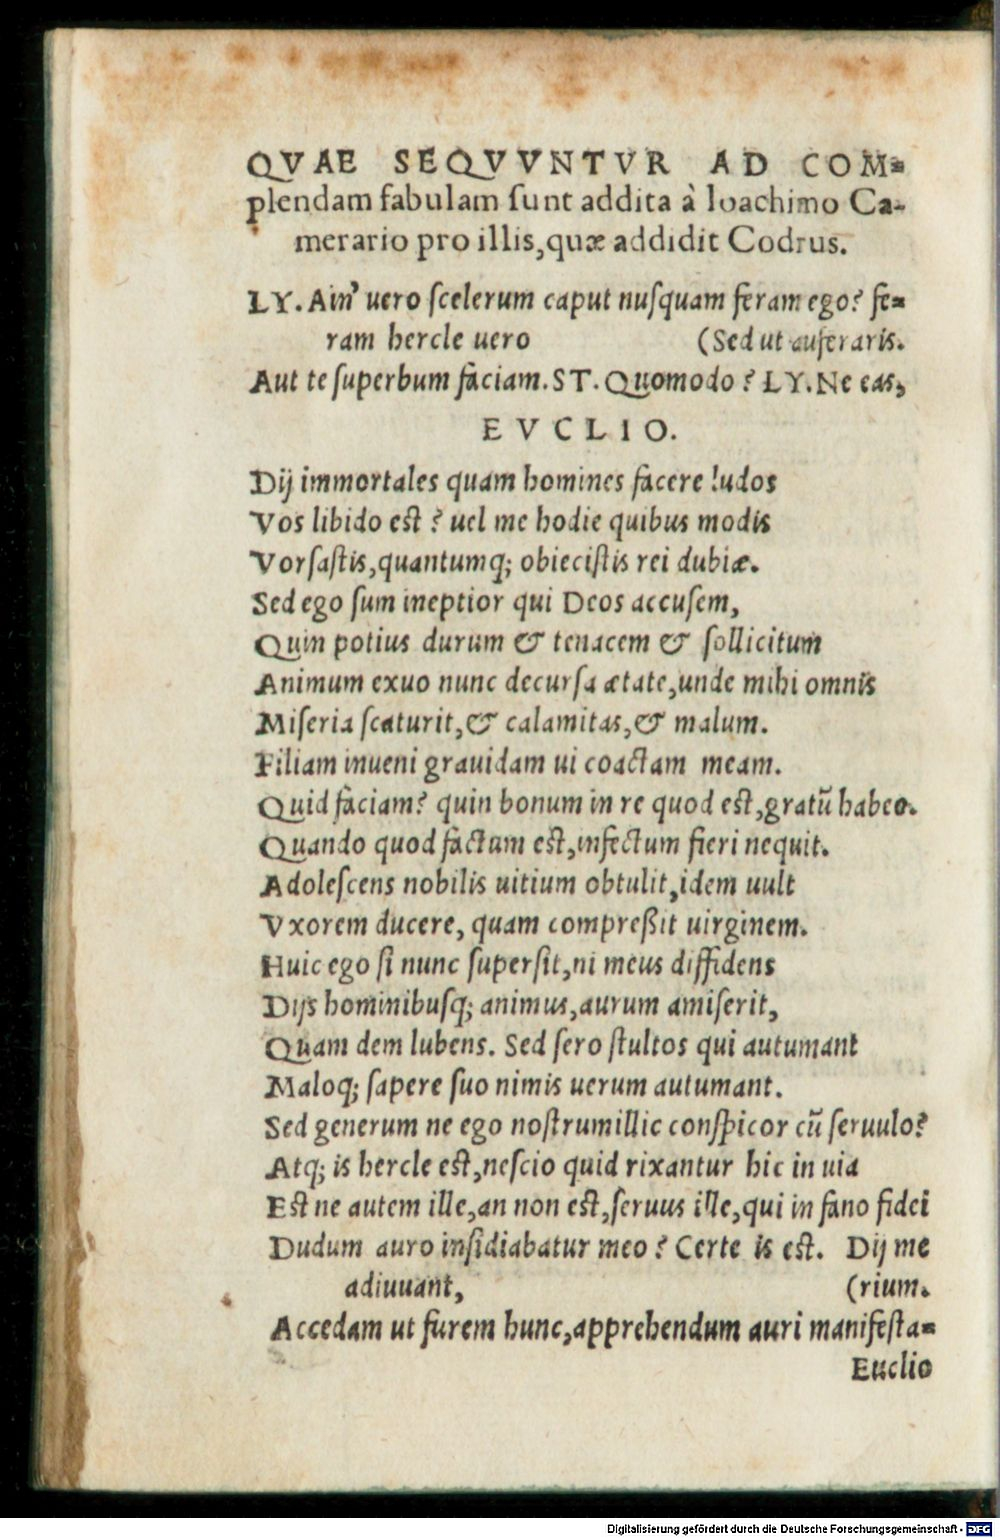 QVAE SEQVVNTVR AD COM-
plendam fabulam sunt addita à Ioachimo Ca-
merario pro illis, quæ addidit Codrus.
LY. Ain' uero scelerum caput nusquam feram ego? fe-
ram hercle uero (Sed ut auferaris.
Aut te superbum faciam. ST. Quomodo? LY. Ne eas,
EVCLIO.
Dij immortales quam homines facere ludos
Vos libido est? uel me hodie quibus modis
Vorsastis, quantumq; obiecistis rei dubiæ.
Sed ego sum ineptior qui Deos accusem,
Quin potius durum & tenacem & sollicitum
Animum exuo nunc decursa ætate, unde mihi omnis
Miseria scaturit, & calamitas, & malum.
Filiam inueni grauidam ui coactam meam.
Quid faciam? quin bonum in re quod est, gratū habeo.
Quando quod factum est, infectum fieri nequit.
Adolescens nobilis uitium obtulit, idem uult
Vxorem ducere, quam compreßit uirginem.
Huic ego si nunc supersit, ni meus diffidens
Dijs hominibusq; animus, aurum amiserit,
Quam dem lubens. Sed sero stultos qui autumant
Maloq; sapere suo nimis uerum autumant.
Sed generum ne ego nostrum illic conspicor cū seruulo?
Atq; is hercle est, nescio quid rixantur hic in uia
Est ne autem ille, an non est, seruus ille, qui in fano fidei
Dudum auro insidiabatur meo? Certe is est. Dij me
adiuuant, (rium.
Accedam ut furem hunc, apprehendum auri manifesta-
Euclio
Digitalisierung gefördert durch die Deutsche Forschungsgemeinschaft - DFG